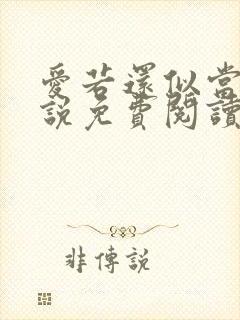 愛若還似當
說免費閱讀
非傳說